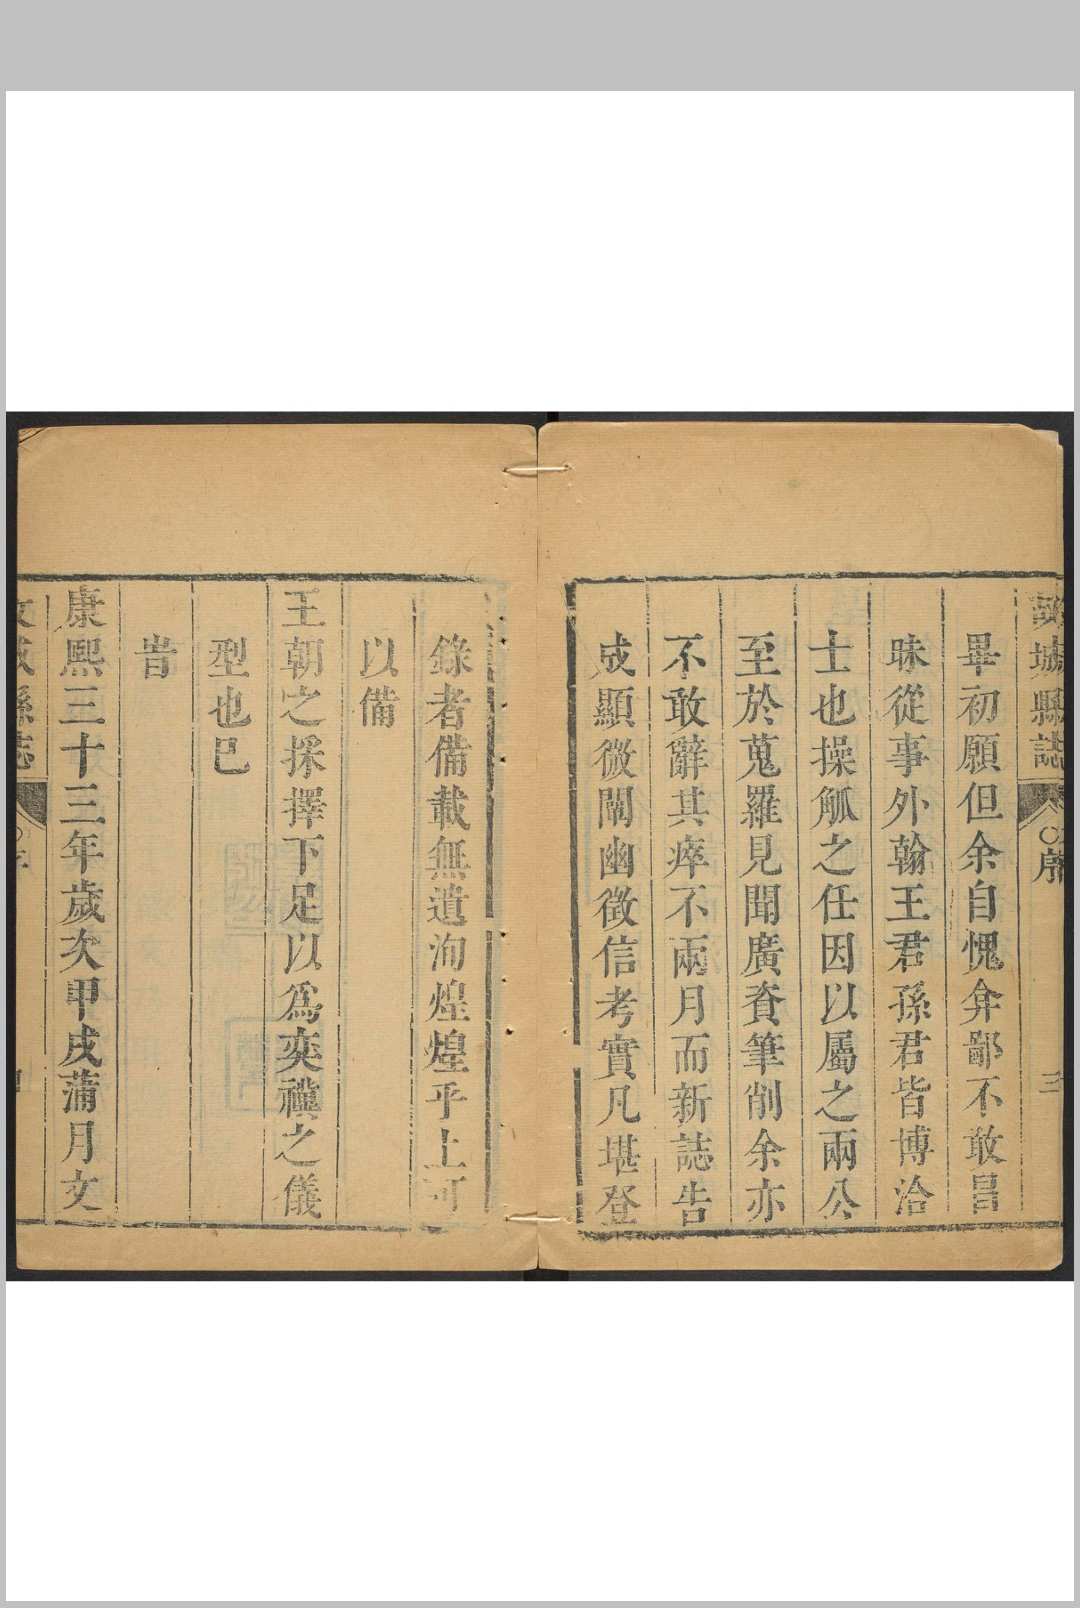 城縣誌
序
三
畢初願但余自愧弇鄙不敢昌
昧從事外翰王君孫君皆博洽
士也操觚之任因以屬之兩公
至於蒐羅見聞廣資筆削余亦
不敢辭其瘁不兩月而新誌告
成顯微闡幽徵信考實凡堪登
錄者備載無遺洵煌煌乎上可
以備
王朝之採擇下足以為奕禩之儀
型也已
旹
康熙三十三年歲次甲戌蒲月文